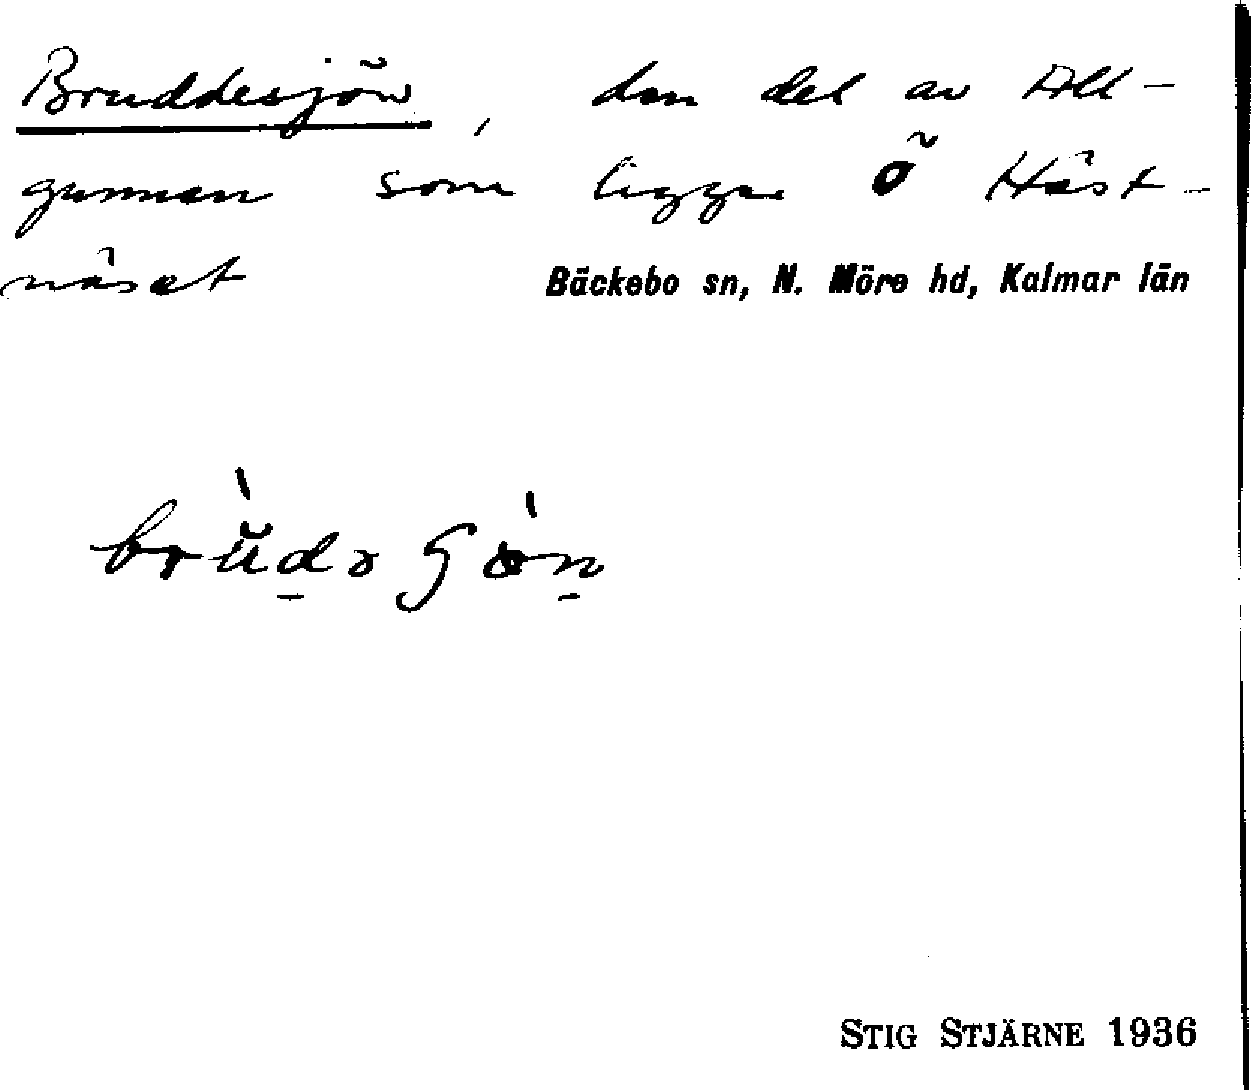 Bruddesjön, den del av All-
gunnen som ligger Ö Häst-
näset
Bäckebo sn, N. Möre hd, Kalmar län
STIG STJÄRNE 1936